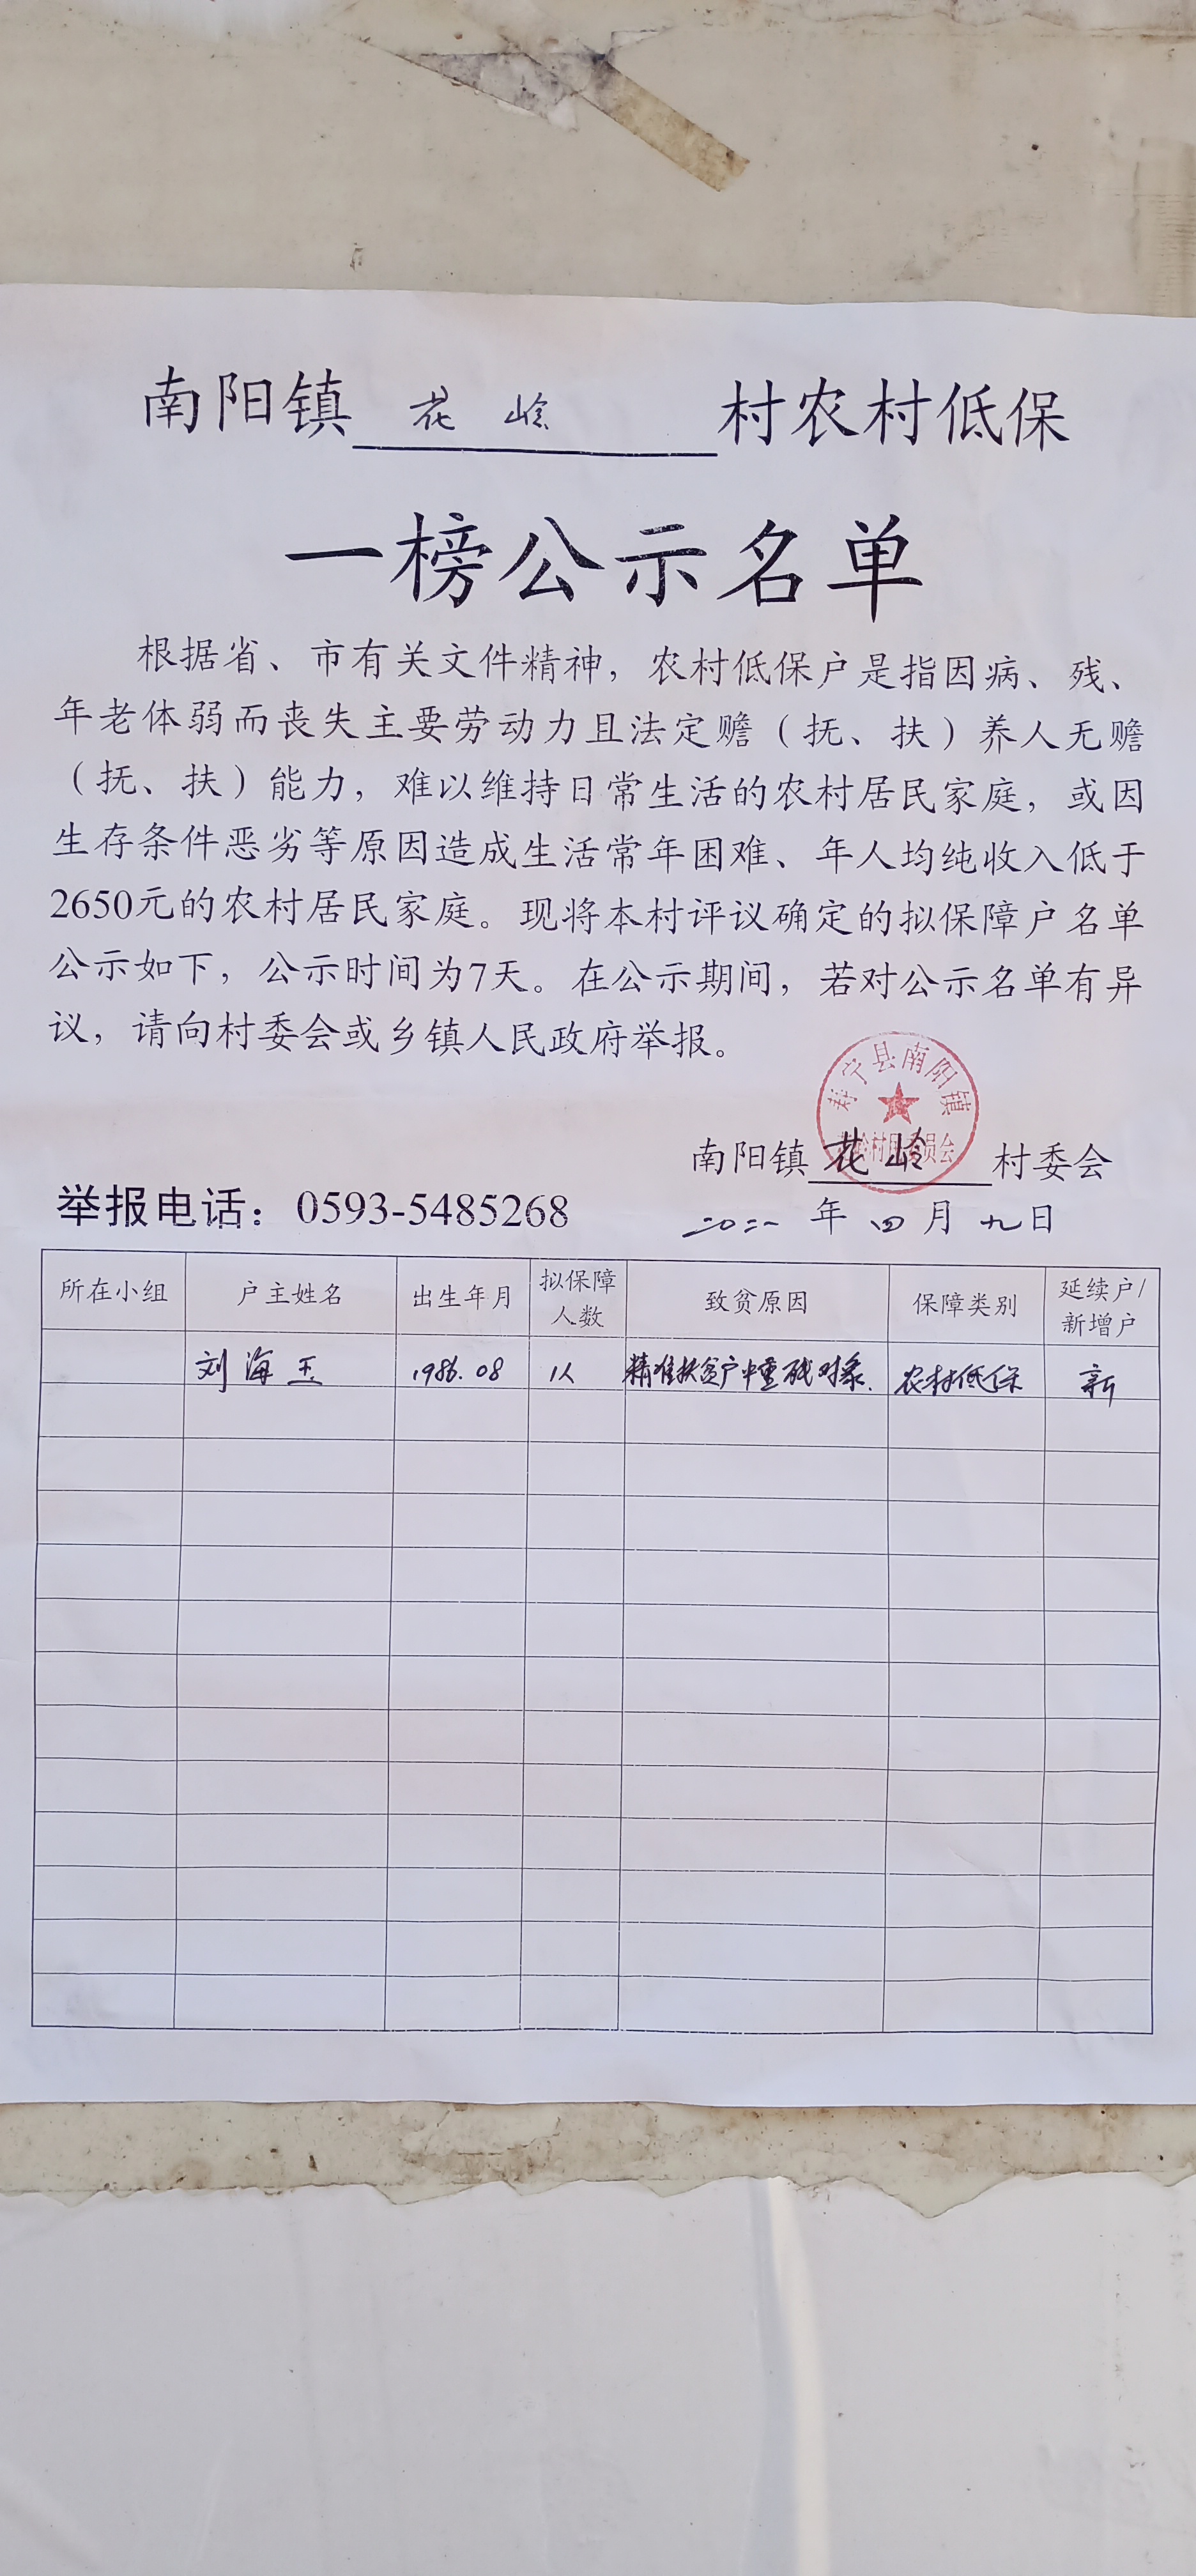 南阳镇 花岭 村农村低保
一榜公示名单
根据省、市有关文件精神，农村低保户是指因病、残、
年老体弱而丧失主要劳动力且法定赡（抚、扶）养人无赡
（抚、扶）能力，难以维持日常生活的农村居民家庭，或因
生存条件恶劣等原因造成生活常年困难、年人均纯收入低于
2650元的农村居民家庭。现将本村评议确定的拟保障户名单
公示如下，公示时间为7天。在公示期间，若对公示名单有异
议，请向村委会或乡镇人民政府举报。
寿宁县南阳镇
花岭村民委员会
南阳镇 花岭 村委会
举报电话：0593-5485268
二〇二一 年 四 月 九 日
所在小组 户主姓名 出生年月 拟保障人数 致贫原因 保障类别 延续户/新增户
刘海玉 1986.08 1人 精准扶贫户中重残对象. 农村低保 新